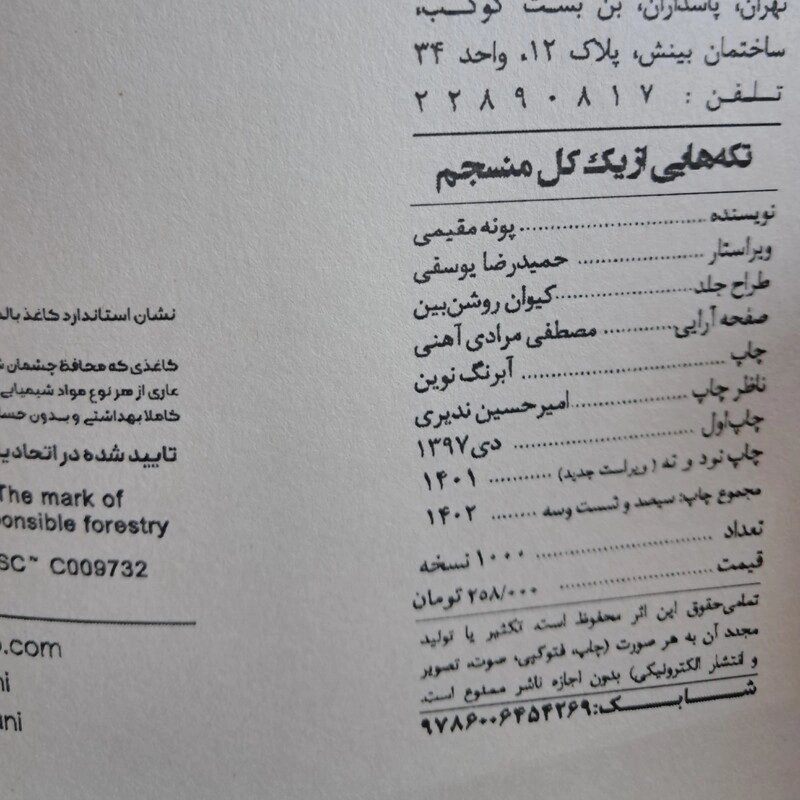 تهران، پاسداران، بن بست کوکب،
ساختمان بینش، پلاک ۱۲، واحد ۳۴
تلفن: ۲۲۸۹۰۸۱۷
تکه‌هایی از یک کل منسجم
نویسنده ........ پونه مقیمی
ویراستار ........ حمیدرضا یوسفی
طراح جلد ........ کیوان روشن‌بین
صفحه آرایی ........ مصطفی مرادی آهنی
چاپ ........ آبرنگ نوین
ناظر چاپ ........ امیرحسین ندیری
چاپ اول ........ دی ۱۳۹۷
چاپ نود و نه (ویراست جدید) ........ ۱۴۰۱
مجموع چاپ: سیصد و شست وسه ........ ۱۴۰۲
تعداد ........ ۱۰۰۰ نسخه
قیمت ........ ۲۵۸/۰۰۰ تومان
تمامی‌حقوق این اثر محفوظ است. تکثیر یا تولید
مجدد آن به هر صورت (چاپ، فتوکپی، صوت، تصویر
و انتشار الکترونیکی) بدون اجازه ناشر ممنوع است.
شابک: ۹۷۸۶۰۰۶۴۵۴۲۶۹
نشان استاندارد کاغذ
کاغذی که محافظ چشمان
عاری از هر نوع مواد شیمیایی
کاملا بهداشتی و بدون
تایید شده در
The mark of
forestry
C009732
.com